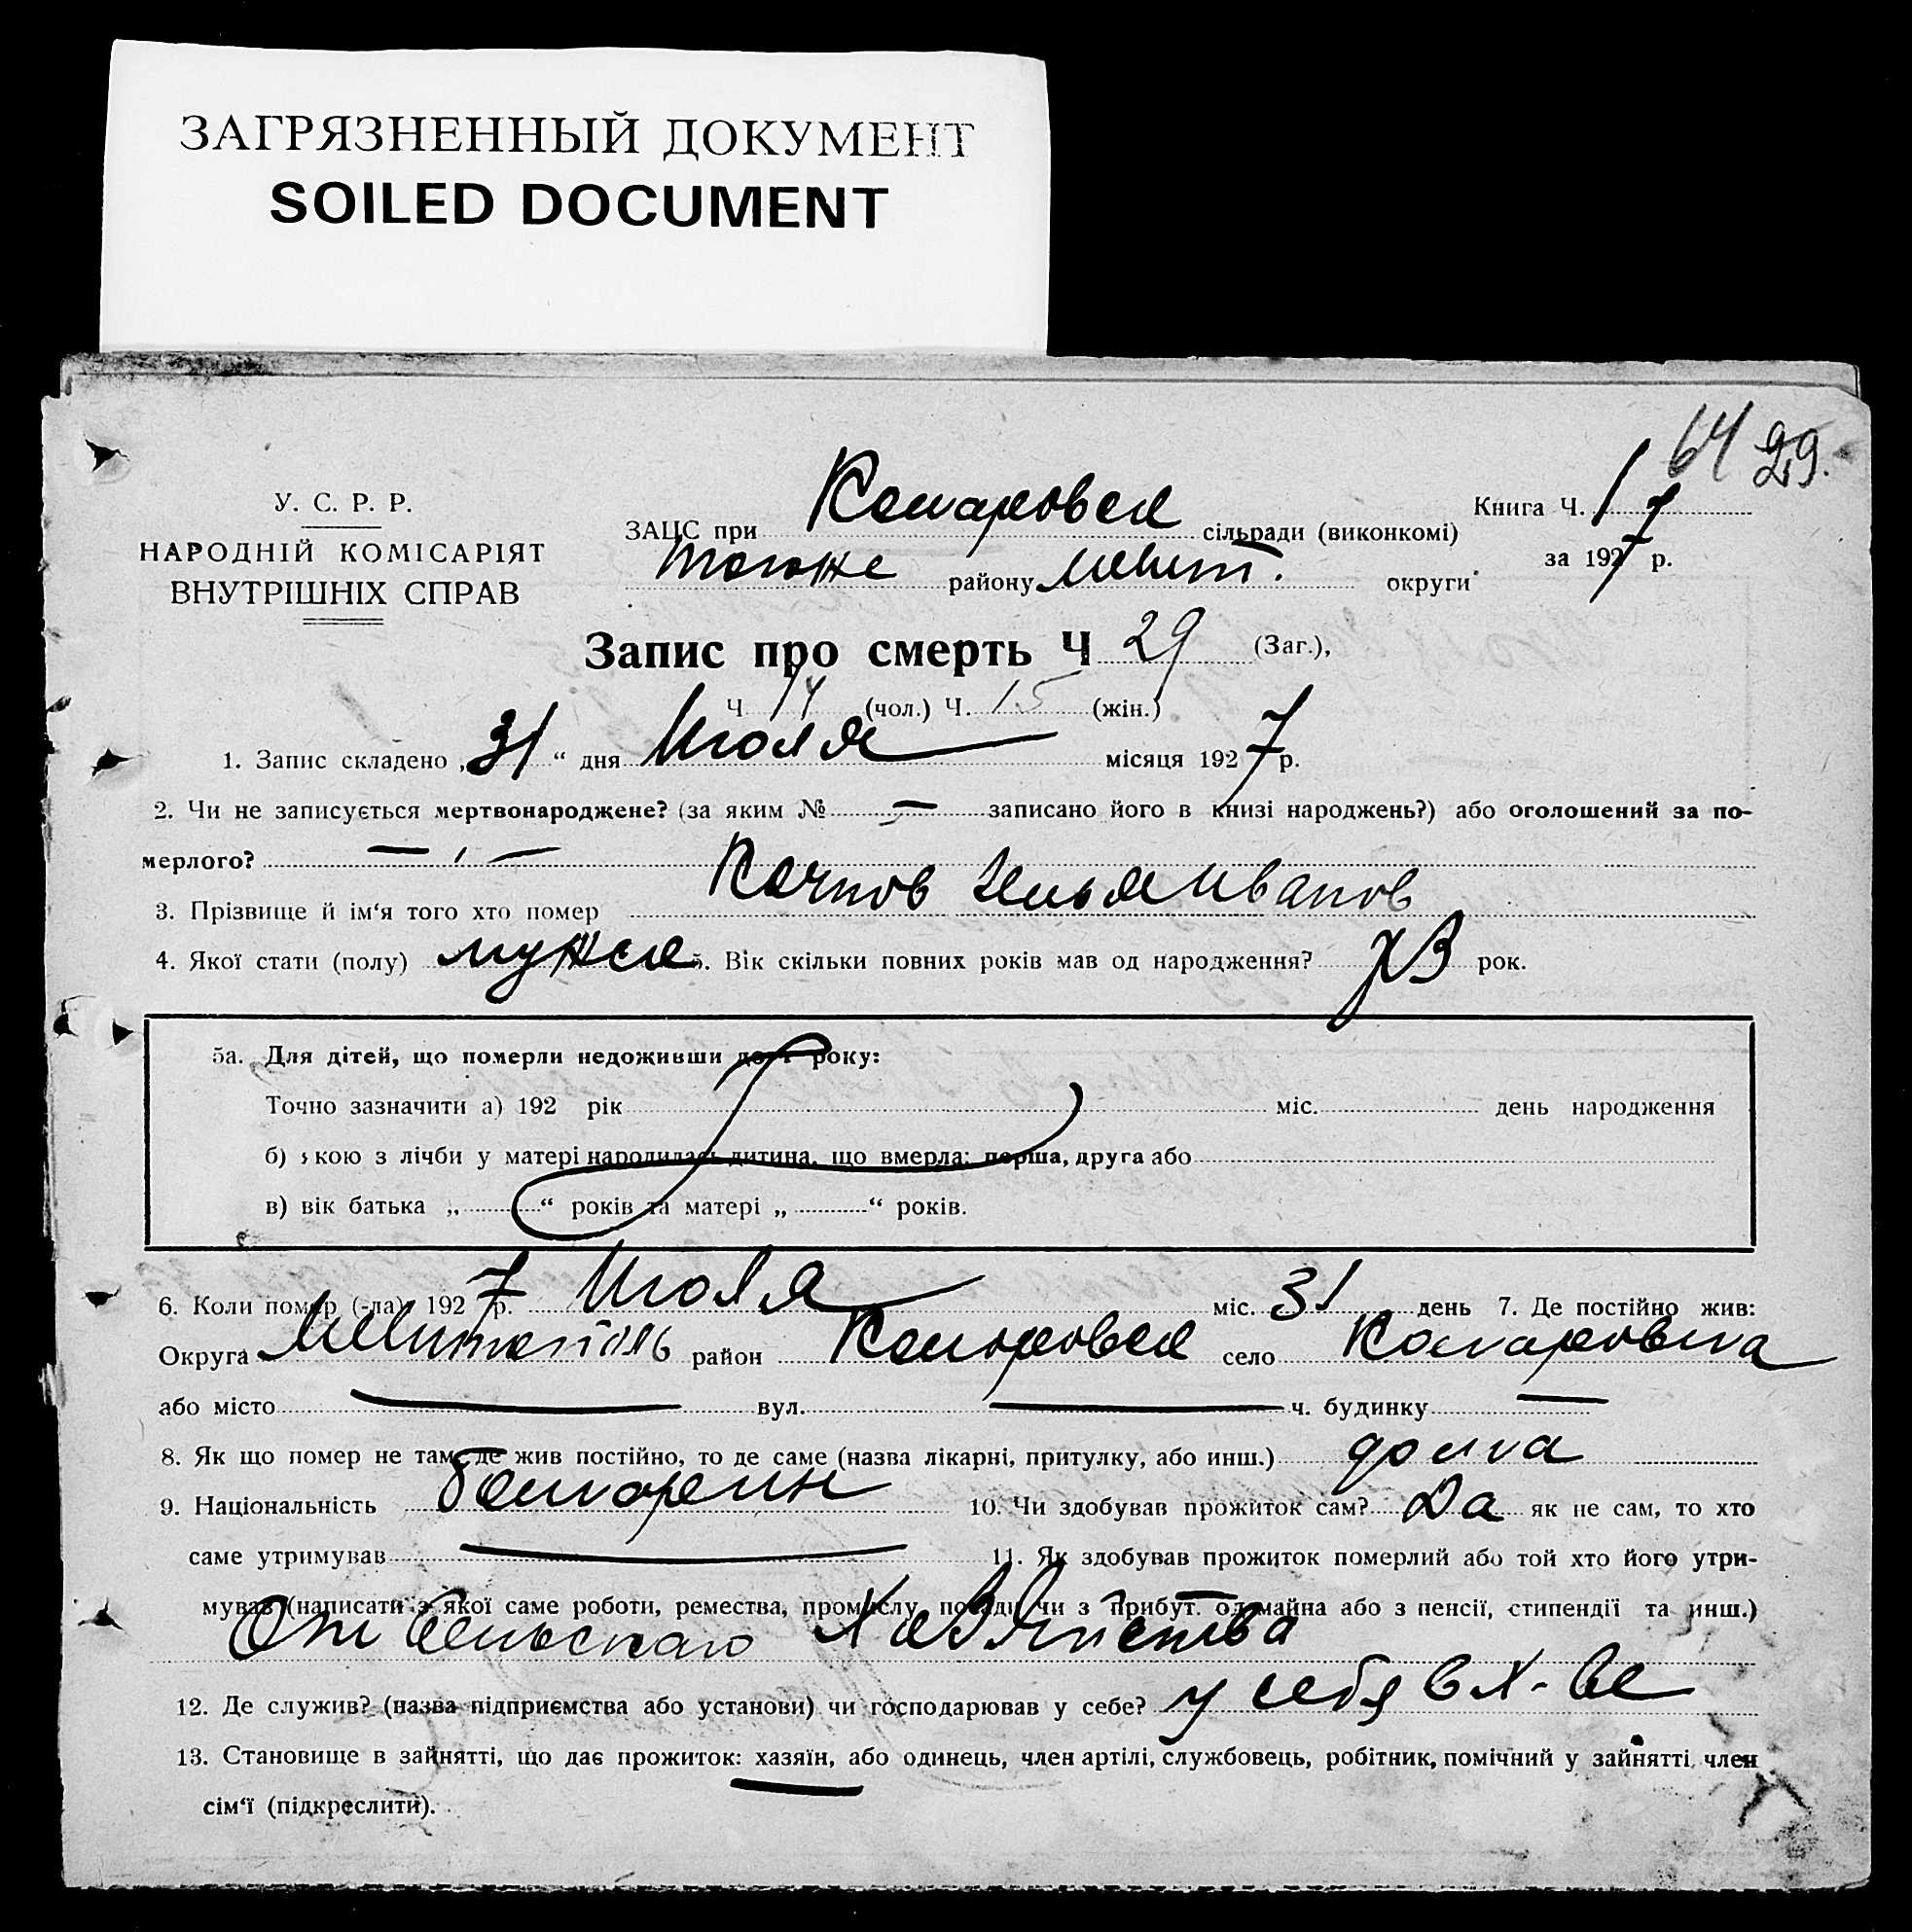 ЗАГРЯЗНЕННЫЙ ДОКУМЕНТ
SOILED DOCUMENT
64 29.
У. С. Р. Р.
НАРОДНІЙ КОМІСАРІЯТ
ВНУТРІШНІХ СПРАВ
ЗАЦС при сільради (виконкомі)
Книга Ч. 1
тогоже району Мелит. округи
за 1927 р.
Запис про смерть Ч 29 (Заг.),
Ч 14 (чол.) Ч. 15 (жін.)
1. Запис складено „31“ дня Июля місяця 1927 р.
2. Чи не записується мертвонароджене? (за яким № — записано його в книзі народжень?) або оголошений за по-
мерлого? —
3. Прізвище й ім‘я того хто помер Илья Иванов
4. Якої стати (полу) мужск 5. Вік скільки повних років мав од народження? рок.
5а. Для дітей, що померли недоживши до 1 року:
Точно зазначити а) 192 рік міс. день народження
б) якою з лічби у матері народилась дитина, що вмерла: перша, друга або
в) вік батька „ “ років та матері „ “ років.
6. Коли помер (-ла) 1927 р. Июля міс. 31 день 7. Де постійно жив:
Округа Мелитополь район село Комаровка
або місто — вул. — ч. будинку —
8. Як що помер не там, де жив постійно, то де саме (назва лікарні, притулку, або инш.) дома
9. Національність 10. Чи здобував прожиток сам? Да як не сам, то хто
саме утримував — 11. Як здобував прожиток померлий або той хто його утри-
мував (написати з якої саме роботи, ремества, промислу, посади чи з прибут. од майна або з пенсії, стипендії та инш.)
От сельскаго хозяйства
12. Де служив? (назва підприємства або установи) чи господарював у себе? у себя в х-ве
13. Становище в зайнятті, що дає прожиток: хазяїн, або одинець, член артілі, службовець, робітник, помічний у зайнятті член
сім‘ї (підкреслити).